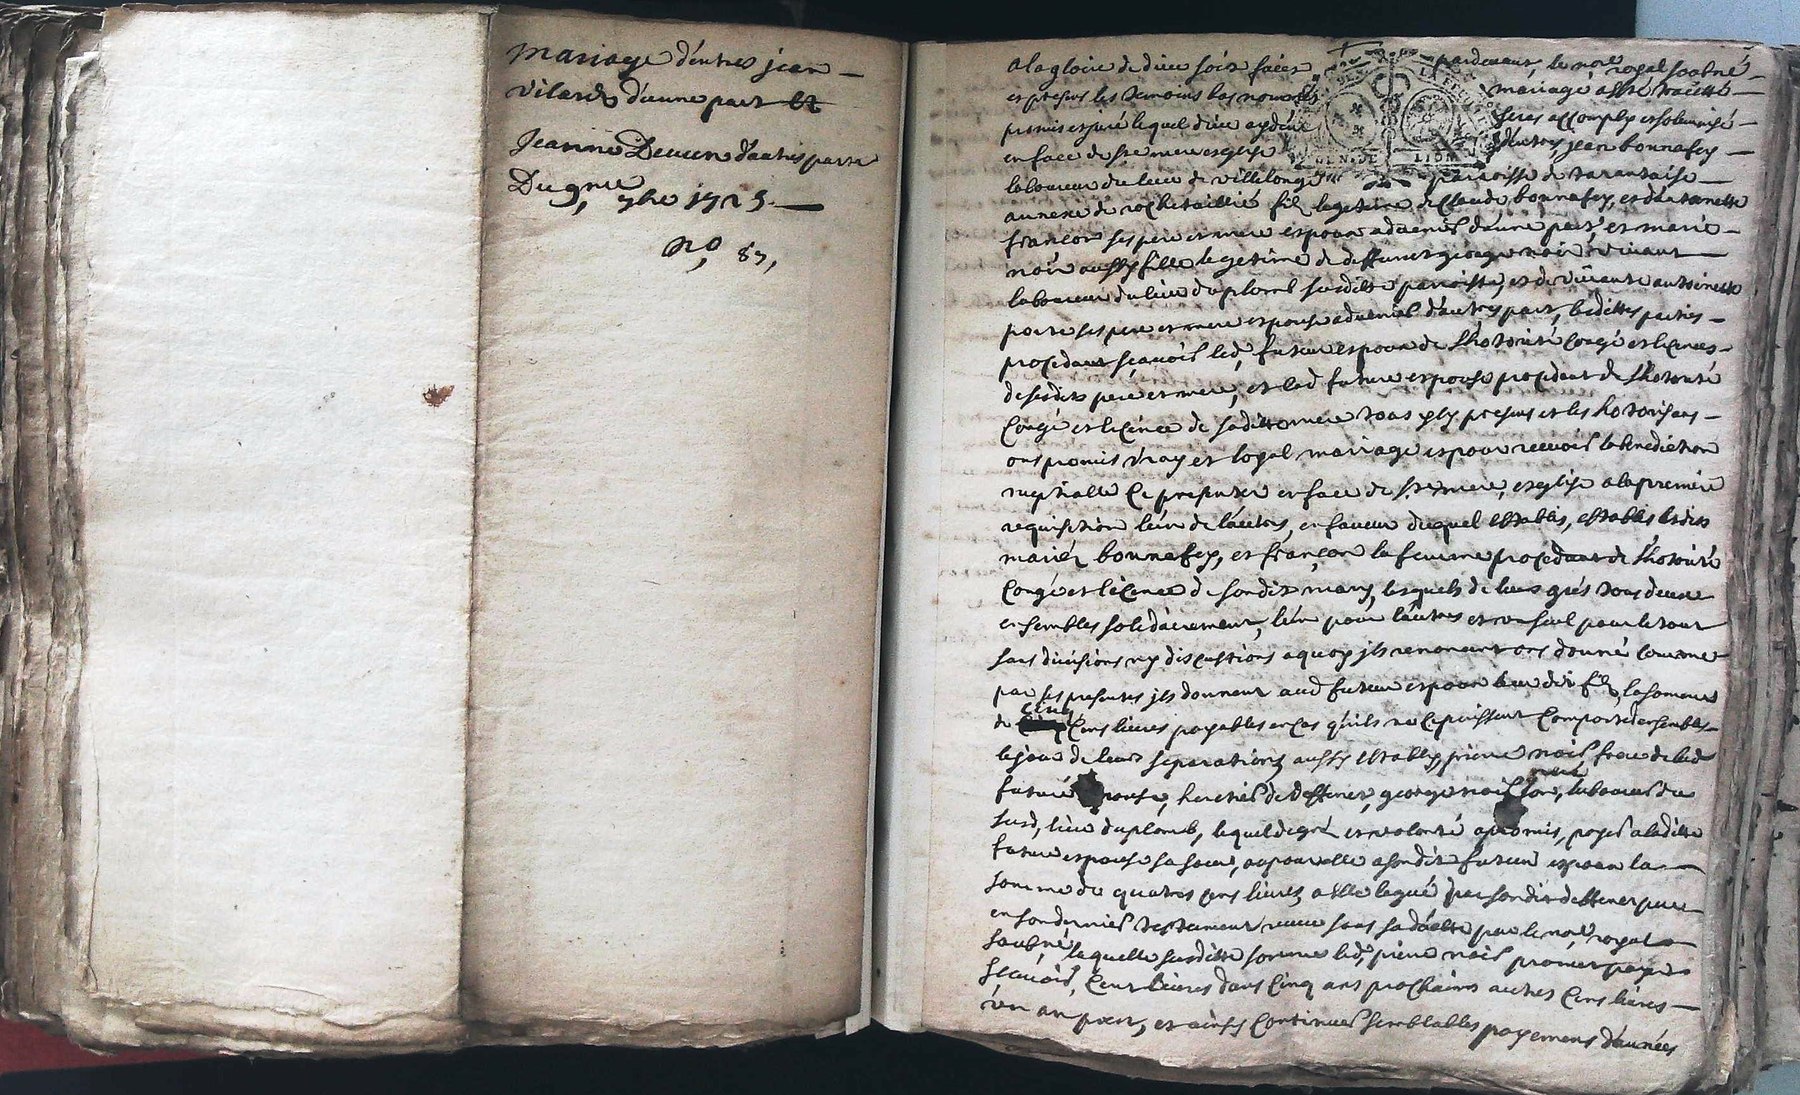 mariage d'entres jean
vilard d'eune part et
Jeanne d'autres parts
Du 9bre 1725
No 87,
a la gloire de dieu soit faict pardevant le nore royal soubné
et presens les temoins bas nommés mariage a esté traitté
promis et juré lequel dieu aydant seras accomply et solemnisé
en face de ste mere esglise d'entres jean bonnafoy
laboureur du lieu de villelonge parroisse de tarantaise
annexe de rochetaillié fils legitime de claude bonnafoy, et d'antoinette
françon ses pere et mere espoux advenir d'une part, et marie
noir aussy fille legetime de deffunct george noir vivant
laboureur du lieu du plomb susditte parroisse, et de vivante antoinette
ses pere et mere espouse advenir d'autres part, lesdittes parties
procedant sçavoir led, futeur espoux de l'hotorité congé et licence
de sesdits pere et mere, et lad future espouse procedant de l'hotorité
congé et licence de saditte mere tous presens et les hotorisans
ont promis vray et loyal mariage et pour recevoir la benediction
nuptialle ce presenter en face de ste mere, esglise a la premiere
requisition l'un de l'autres, en faveur duquel establis, establis lesdits
mariés bonnafoy, et françon la femme procedant de l'hotorité
congé et licence de sondit mary, lesquels de leurs grés tous deux
ensembles solidairement, l'un pour l'autres et un seul pour le tout
sans divisions ny discutions a quoy ils renoncent ont donné comme
par ses presentes ils donnent aud futeur espoux leur dit fils, la somme
de cinq cens livres payables en cas qu'ils ne ce puissent comporter ensembles
le jour de leur separations, aussy estably pierre noir, frere de lad
future espouse, heretier de deffunct, george noir son pere, laboureur du
susd, lieu du plomb, lequel de gré et volonté a promis, payer a laditte
future espouse sa soeur, ou pour elle a sondit futeur espoux la
somme de quatres cens livres, a elle legué par sondit deffunct pere
en son dernier testament receu sous sa datte par le nore royal
soubné laquelle susditte somme led, pierre noir promet payer
sçavoir, cent livres dans cinq ans prochains autres cens livres
un an pres, et ainsy continuer semblables payemens d'années
GEN DE LION